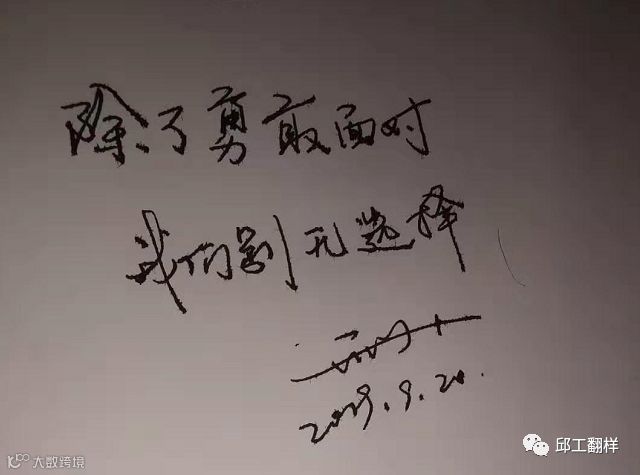 除了勇敢面对
我们别无选择
2019.9.20.
大数跨境
邱工翻样